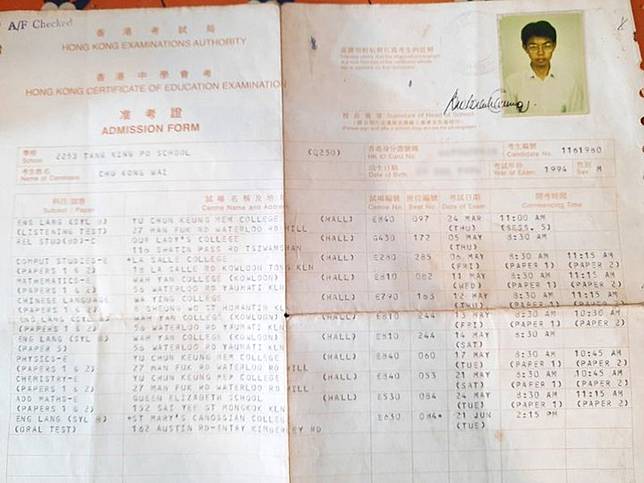 A/F Checked
香港考試局
HONG KONG EXAMINATIONS AUTHORITY
香港中學會考
HONG KONG CERTIFICATE OF EDUCATION EXAMINATION
准考證
ADMISSION FORM
Signature of Head of School
學校
School
2253 TANG KING PO SCHOOL
(Q250)
香港身分證號碼
HK ID Card No.
考生編號
Candidate No. 1161980
考生姓名
Name of Candidate
CHU KONG WAI
出生日期
Date of Birth
考試年份
Year of Exam. 1994
性別
Sex M
科目/試卷
Subject / Paper
試場名稱及地
Centre Name and Address
試場編號
Centre No.
座位編號
Seat No.
考試日期
Exam Date
開考時間
Commencing Time
ENG LANG (SYL B) YU CHUN KEUNG MEM COLLEGE (HALL) E840 097 24 MAR 11:00 AM
(LISTENING TEST) 27 MAN FUK RD WATERLOO RD HILL (THU) (SESS. 5)
REL STUD(BD)-C OUR LADY'S COLLEGE (HALL) G430 172 05 MAY 8:30 AM
SHATIN PASS RD TSIWAMSHAN (THU)
COMPUT STUDIES-E *LA SALLE COLLEGE (HALL) E280 285 06 MAY 8:30 AM 11:15 AM
(PAPERS 1 & 2) 18 LA SALLE RD KOWLOON TONG KLN (FRI) (PAPER 1) (PAPER 2)
MATHEMATICS-E WAH YAN COLLEGE (KOWLOON) (HALL) E810 082 11 MAY 8:30 AM 11:15 AM
(PAPERS 1 & 2) 56 WATERLOO RD YAUMATI KLN (WED) (PAPER 1) (PAPER 2)
CHINESE LANGUAGE WA YING COLLEGE (HALL) E790 163 12 MAY 8:30 AM 11:15 AM
(PAPERS 1 & 2) 8 SHEUNG WO ST HOMANTIN KLN (THU) (PAPER 1) (PAPER 2)
ENG LANG (SYL B) WAH YAN COLLEGE (KOWLOON) (HALL) E810 244 13 MAY 8:30 AM 10:30 AM
(PAPERS 1 & 2) 56 WATERLOO RD YAUMATI KLN (FRI) (PAPER 1) (PAPER 2)
ENG LANG (SYL B) WAH YAN COLLEGE (KOWLOON) (HALL) E810 244 14 MAY 8:30 AM
(PAPER 3) 56 WATERLOO RD YAUMATI KLN (SAT)
PHYSICS-E YU CHUN KEUNG MEM COLLEGE (HALL) E840 060 17 MAY 8:30 AM 10:45 AM
(PAPERS 1 & 2) 27 MAN FUK RD WATERLOO RD HILL (TUE) (PAPER 1) (PAPER 2)
CHEMISTRY-E YU CHUN KEUNG MEM COLLEGE (HALL) E840 053 21 MAY 8:30 AM 10:45 AM
(PAPERS 1 & 2) 27 MAN FUK RD WATERLOO RD HILL (SAT) (PAPER 1) (PAPER 2)
ADD MATHS-E QUEEN ELIZABETH SCHOOL (HALL) E530 084 24 MAY 8:30 AM 11:15 AM
(PAPERS 1 & 2) 152 SAI YEE ST MONGKOK KLN (TUE) (PAPER 1) (PAPER 2)
ENG LANG (SYL B) *ST MARY'S CANOSSIAN COLLEGE E630 084* 21 JUN 2:15 PM
(ORAL TEST) 162 AUSTIN RD-ENTRY KIMBERLEY RD (TUE)